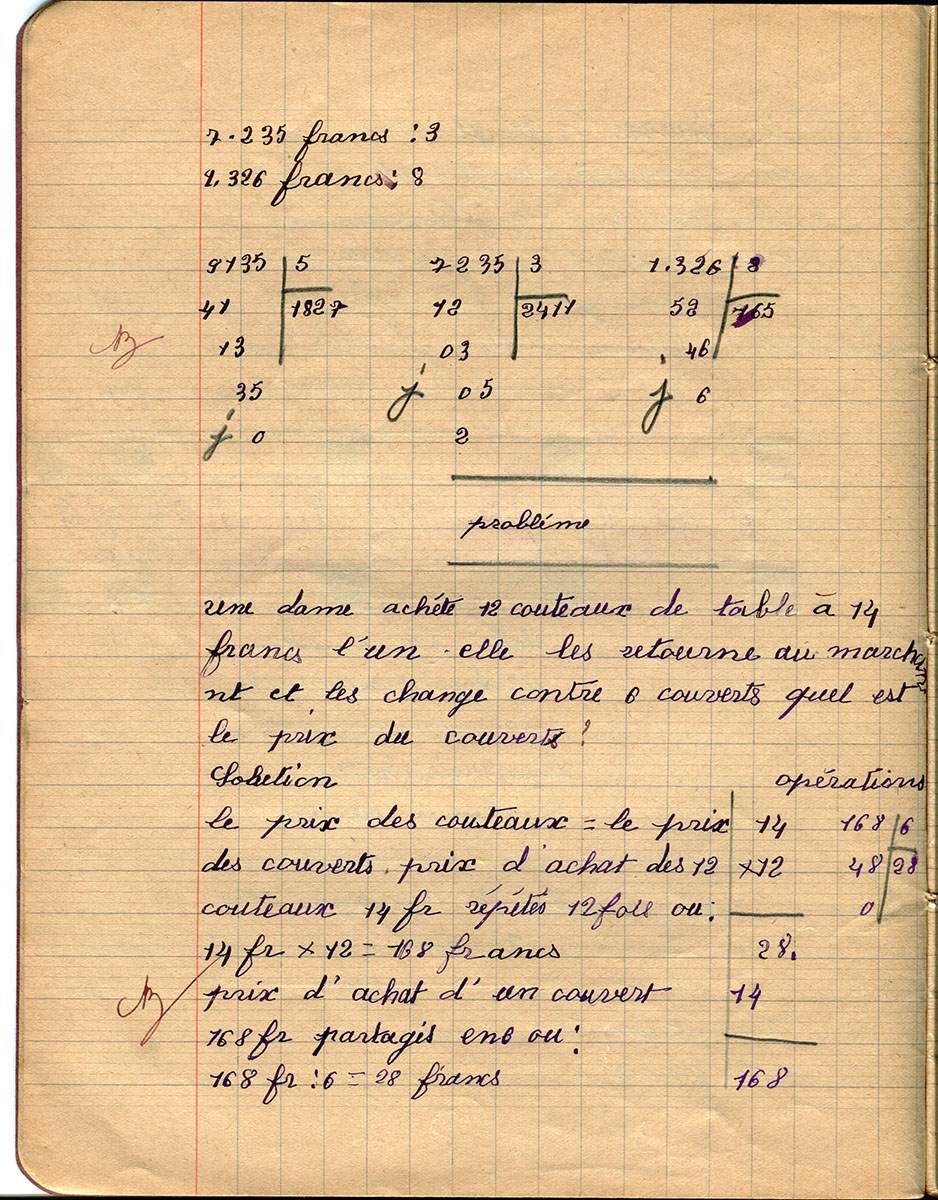 7.235 francs : 3
1.326 francs : 8
9135 5 7235 3 1.326 8
41 1827 12 2411 52 165
13 03 46
35 j 05 j 6
j 0 2
probléme
une dame achéte 12 couteaux de table à 14
francs l'un elle les retourne au marcha
nt et les change contre 6 couverts quel est
le prix du couverts ?
Solution opérations
le prix des couteaux = le prix 14 168 6
des couverts. prix d'achat des 12 ×12 48 28
couteaux 14 fr répétés 12 fois ou : 0
14 fr × 12 = 168 francs 28.
B prix d'achat d'un couvert 14
168 fr partagés en 6 ou :
168 fr : 6 = 28 francs 168